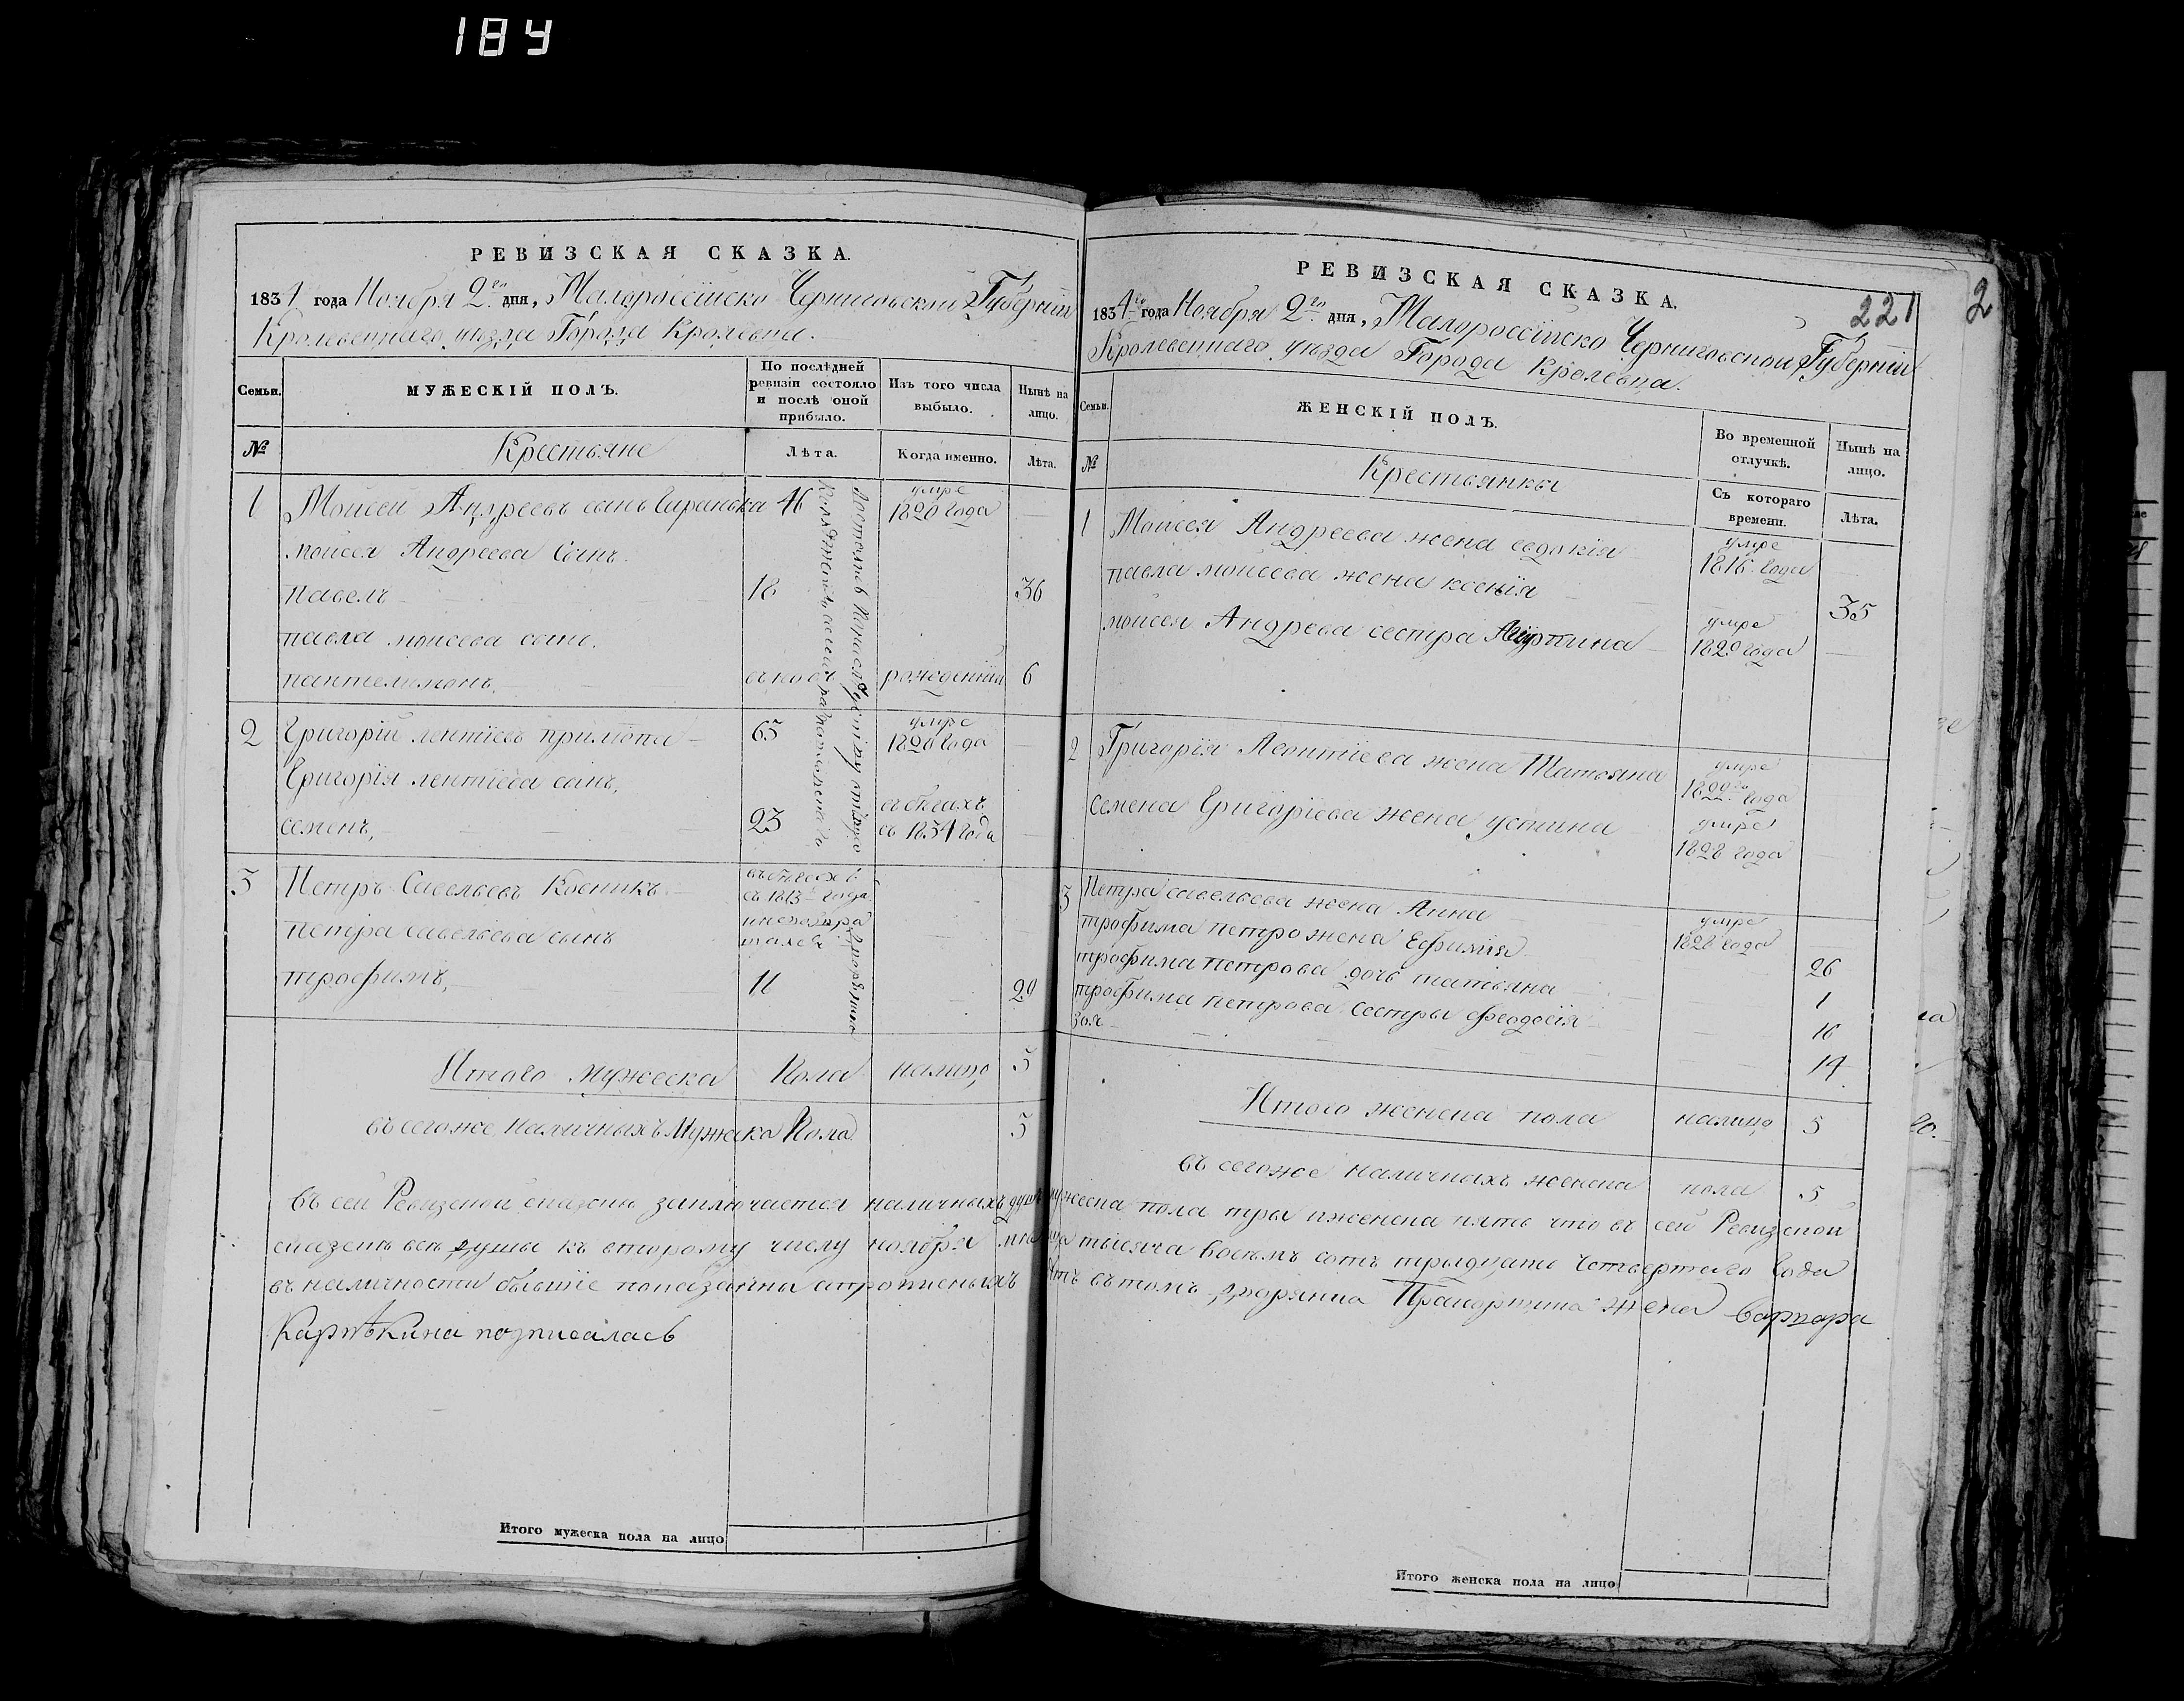 184
РЕВИЗСКАЯ СКАЗКА.
1834 года Ноября 2го дня, Малороссійско Черниговской Губерніи
Кролевецкаго уезда Города Кролевца.
Семьи.
МУЖЕСКІЙ ПОЛЪ.
По послѣдней ревизіи состояло и послѣ оной прибыло.
Изъ того числа выбыло.
Нынѣ на лицо.
№
Крестьяне
Лѣта.
Когда именно.
Лѣта.
1 Моисей Андреевъ сынъ 46 умре 1820 года
Моисея Андреева Сынъ
Павелъ 18 36
павла моисеева сынъ
пантелимонъ рожденный 6
2 Григорій лентіевъ 65 умре 1820 года
Григорія лентіева сынъ,
семенъ, 23 въ бегахъ съ 1834 года
3 Петръ Савельевъ въ бегахъ съ 1813 года
Петра савельева сынъ
трофимъ, 11 29
Итого мужеска Пола налицо 3
въ сегоже наличныхъ Мужеска Пола 3
Итого мужеска пола на лицо
2
221
РЕВИЗСКАЯ СКАЗКА.
1834го года Ноября 2го дня, Малороссійско Черниговской Губерніи
Кролевецкаго уезда Города Кролевца.
Семьи.
ЖЕНСКІЙ ПОЛЪ.
Во временной отлучкѣ.
Нынѣ на лицо.
№
Крестьянки
Съ котораго времени.
Лѣта.
1 Моисея Андреева жена евдокія умре 1816 года
павла моисева жена ксенія 35
моисея Андрева сестра умре 1820 года
2 Григорія Леонтіева жена Татьяна умре года
Семена Григоріева жена устина умре 1828 года
3 Петра савельева жена Анна умре 1828 года
трофима петро жена Ефимія 26
трофима петрова дочь татьяна 1
трофима петрова сестры феодосія 16
зоя 14
Итого женска пола налицо 5
въ сегоже наличныхъ женска пола 5
въ сей Ревизской сказки заключается наличныхъ душъ мужеска пола три иженска пять что въ сей Ревизской
сказки все души къ второму числу ноября тысяча восемъ сотъ тридцать четвертаго Года
въ наличности бывшіе показанны въ томъ дворянка жена варвара
подписалась
Итого женска пола на лицо